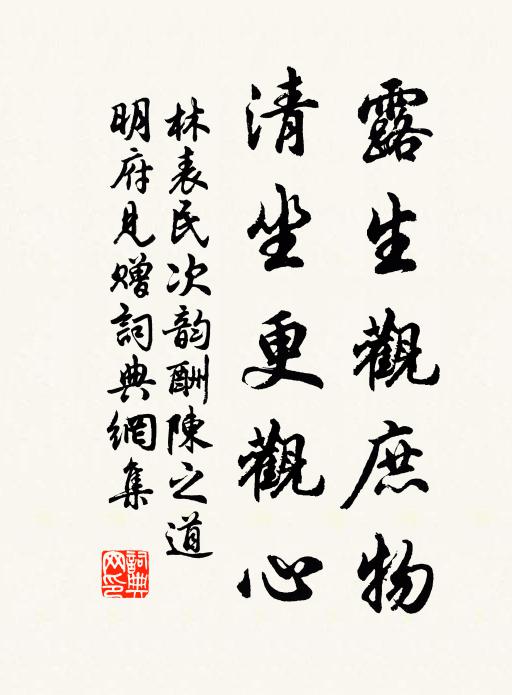 露生觀庶物
清坐更觀心
林表民次韵酬陳之道
明府見贈詞典網集
詞典網印